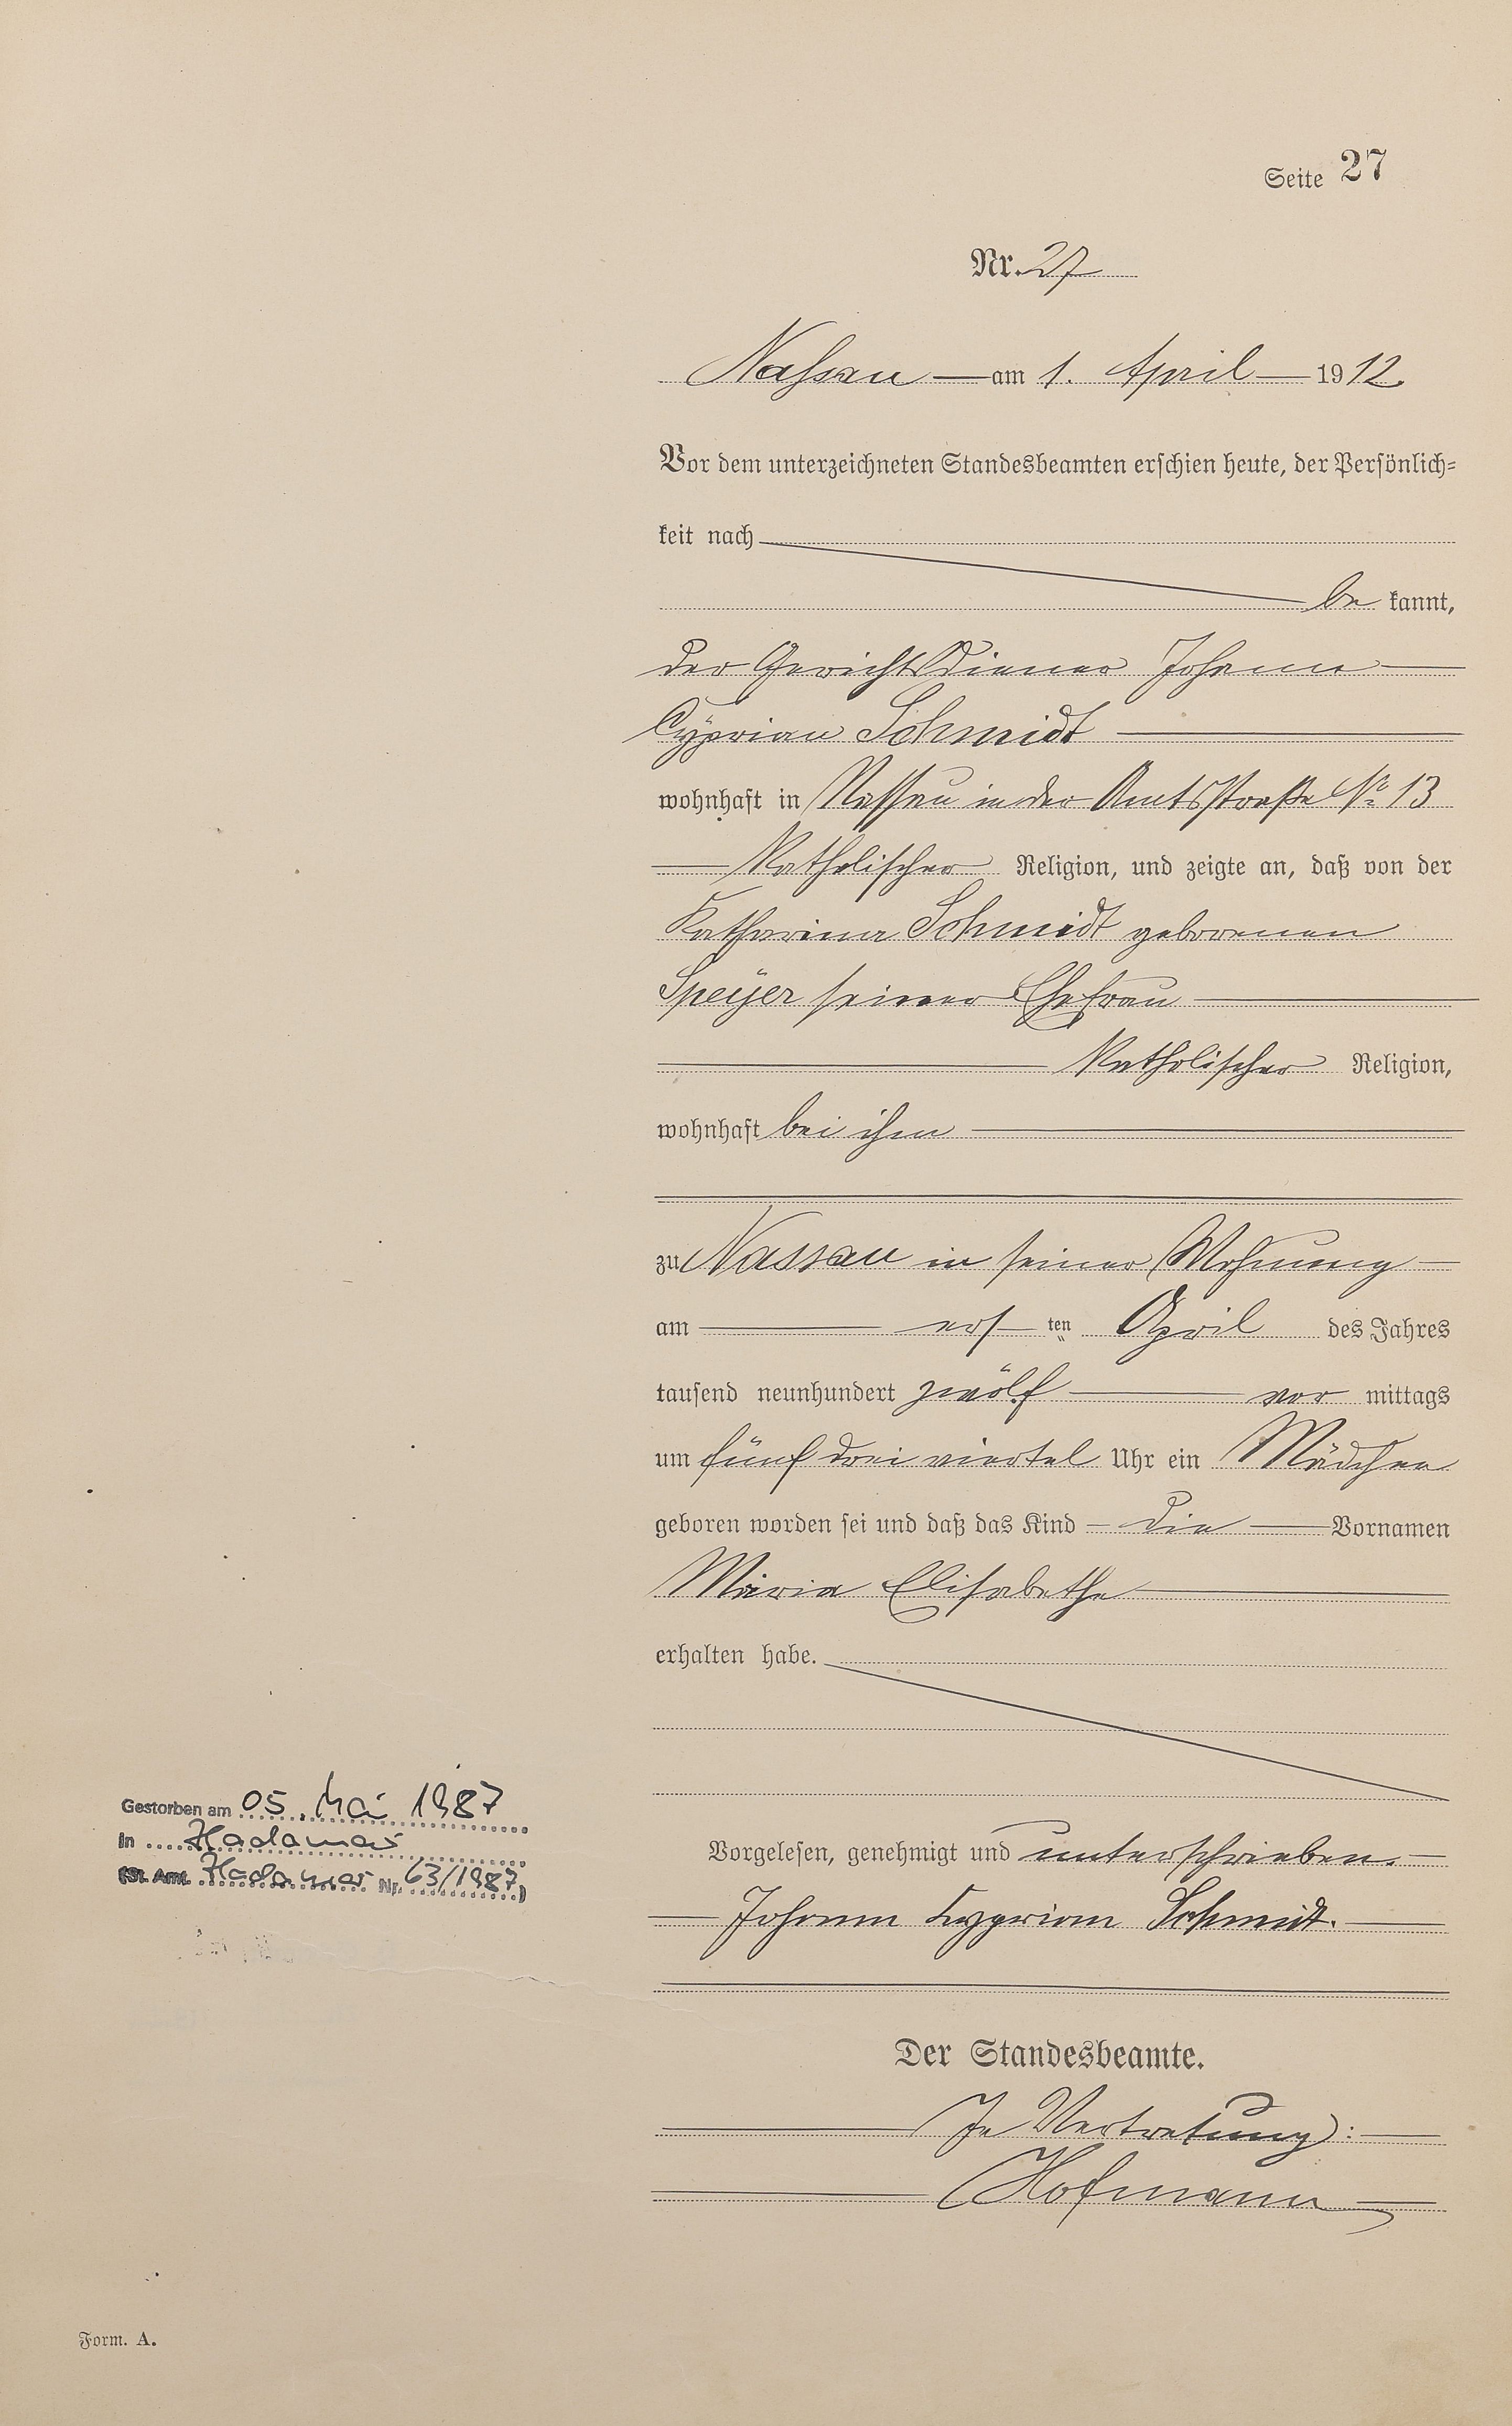 Seite 27
Nr. 27
Nassau am 1. April 1912.
Vor dem unterzeichneten Standesbeamten erschien heute, der Persönlich-
keit nach
be kannt,
der Gerichtsdiener Johann
Cyprian Schmidt
wohnhaft in Nassau in der Amtsstraße No 13
Katholischer Religion, und zeigte an, daß von der
Katharina Schmidt geborenen
Speÿer seiner Ehefrau
Katholischer Religion,
wohnhaft bei ihm
zu Nassau in seiner Wohnung
am ers ten April des Jahres
tausend neunhundert zwölf vor mittags
um fünf drei viertel Uhr ein Mädchen
geboren worden sei und daß das Kind die Vornamen
Maria Elisabethe
erhalten habe.
Gestorben am 05. Mai 1987
in Hadamar
(St. Amt. Hadamar Nr. 63/1987)
Vorgelesen, genehmigt und unterschrieben.
Johann Cyprian Schmidt.
Der Standesbeamte.
In Vertretung:
Hofmann
Form. A.